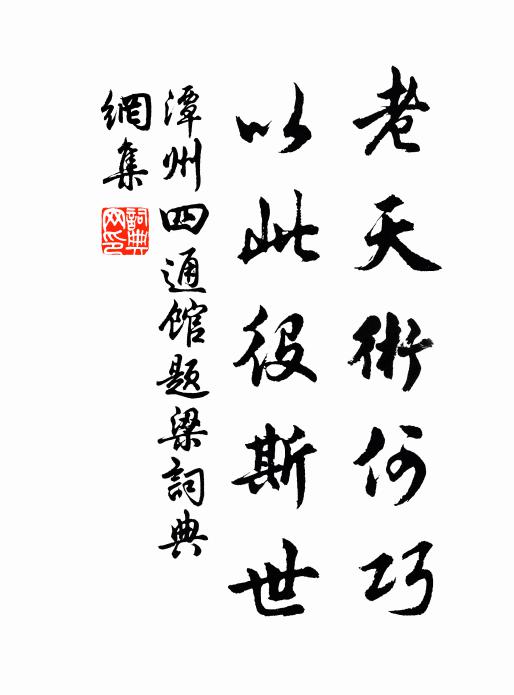 老天術何巧
以此役斯世
潭州四通館題梁詞典
網集
詞典
网印